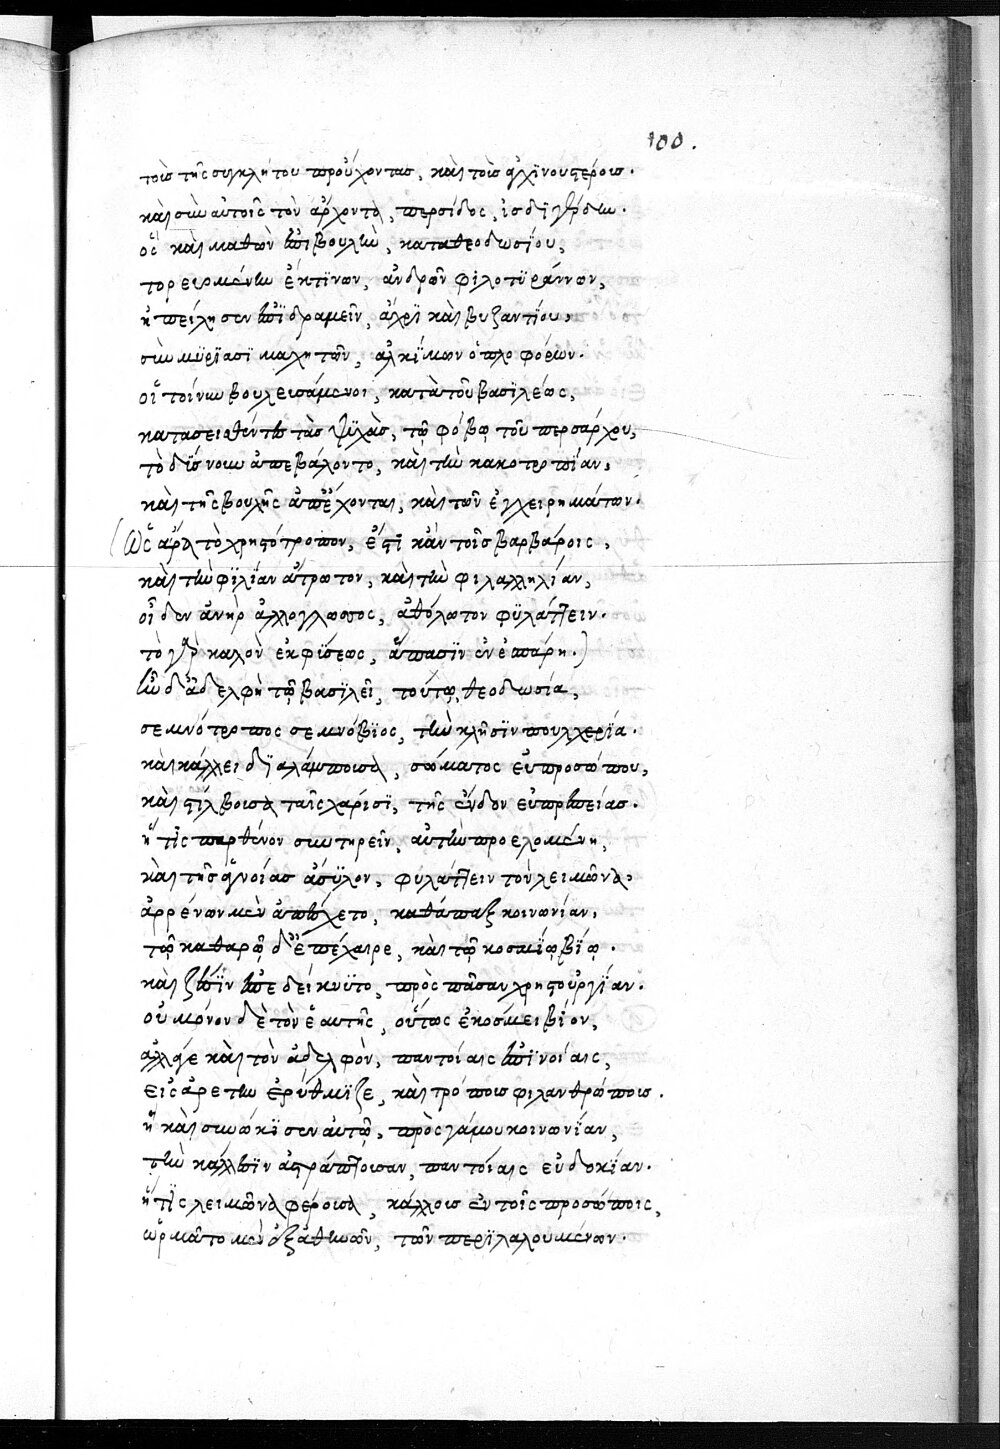 100.
τοῖς τῆς συγκλήτου προὔχοντας, καὶ τοῖς ἀγχϊνουστέροις.
καὶ σὺν αὐτοῖς τὸν ἄρχοντα, περσίδος, ἰσδιγέρδην.
ὃς καὶ μαθὼν ἐπιβουλὴν, κατα θεοδωσΐου,
τορευομένην ἐκ τϊνων, ἀνδρῶν φιλοτϋράννων,
ἠπείλησεν ἐπϊδραμεῖν, ἄχρϊ καὶ βυζαντΐου,
σὺν μϋρϊάσϊ μαχητῶν, ἀλκίμων ὁπλοφόρων.
οἱ τοίνυν βουλευσάμενοι, κατὰ τοῦ βασϊλέως,
κατασεισθέντες τὰς ψϋχὰς, τῷ φόβῳ τοῦ περσάρχου,
τὸ δύσνουν ἀπεβάλοντο, καὶ τὴν κακοτροπίαν,
καὶ τῆς βουλῆς ἀπέχονται, καὶ τῶν ἐγχειρημάτων.
(ὡς ἄρα τὸ χρηστότροπον, ἔστϊ κἀν τοῖς βαρβάροις,
καὶ τὴν φϊλίαν ἄτρωτον, καὶ τὴν φιλαλληλίαν,
οἶδεν ἀνὴρ ἀλλόγλωσσος, ἀθόλωτον φϋλάττειν.
τὸ γὰρ καλὸν ἐκ φύσεως, ἅπασϊν ἐνεσπάρη.)
ἦν δ' ἀδελφὴ τῷ βασϊλεῖ, τούτῳ θεοδωσίῳ,
σεμνότροπος σεμνόβϊος, τὴν κλῆσϊν πουλχερΐα.
καὶ κάλλει διαλάμπουσα, σώματος εὐπροσώπου,
καὶ στίλβουσα ταῖς χάρισϊ, τῆς ἔνδον εὐπρεπείας.
ἥτις παρθένον συντηρεῖν, αὑτὴν προελομένη,
καὶ τῆς ἁγνείας ἄσυλον, φυλάττειν τὸν λειμῶνα,
ἀρρένων μὲν ἀπείχετο, καθάπαξ κοινωνίαν,
τῷ καθαρῷ δ' ἐπέχαιρε, καὶ τῷ κοσμΐῳ βΐῳ.
οὐ μόνον δὲ τὸν ἑαυτῆς, οὕτως ἐκόσμει βΐον,
ἀλλά γε καὶ τὸν ἀδελφὸν, παντοίαις ἐπϊνοίαις,
εἰς ἀρετὴν ἐρύθμϊζε, καὶ τρόποις φιλανθρώποις.
ἣ καὶ συνῴκϊσεν αὐτῷ, πρὸς γάμου κοινωνΐαν,
τὴν κάλλεσϊν ἀστράπτουσαν, παντοίαις εὐδοκΐαν.
ἥτϊς λειμῶνα φέρουσα, κάλλους ἐν τοῖς προσώποις,
ὡρμᾶτο μὲν ἐξ ἀθηνῶν, τῶν περϊλαλουμένων.